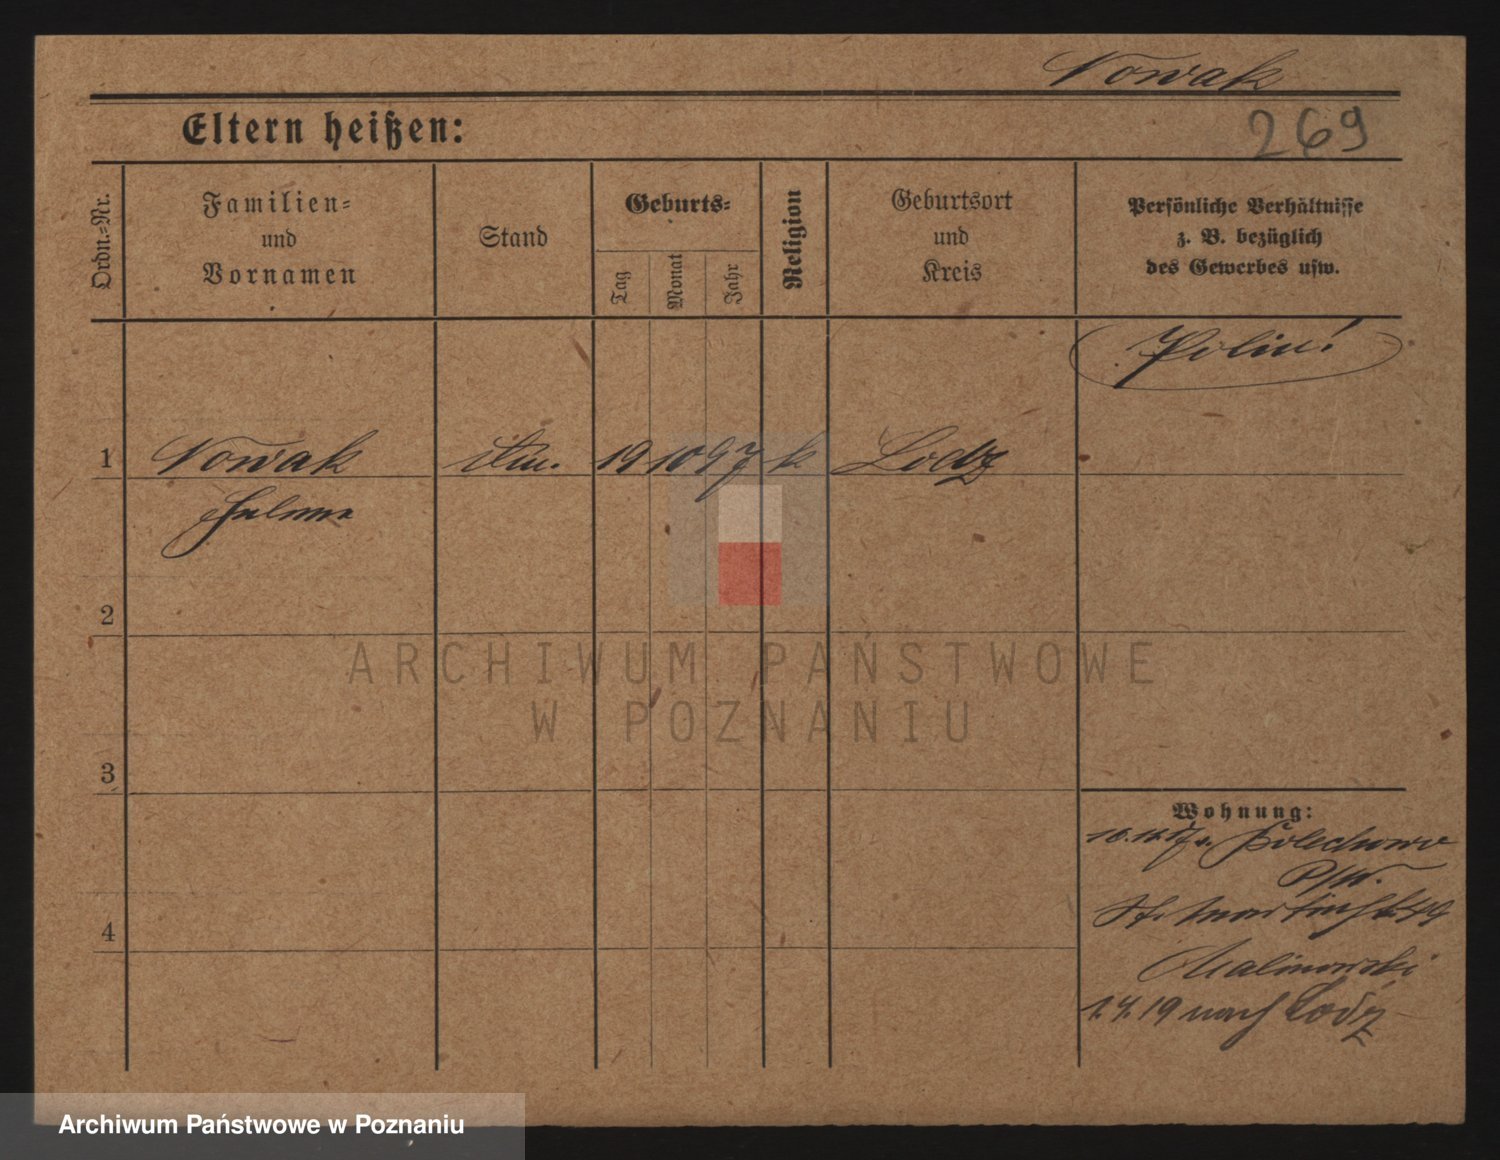 Nowak
Eltern heißen:
269
Ordn.-Nr.
Familien-
und
Vornamen
Stand
Geburts-
Tag
Monat
Jahr
Religion
Geburtsort
und
Kreis
Persönliche Verhältnisse
z. B. bezüglich
des Gewerbes usw.
1
Nowak
19
10
97
k
Lodz
2
ARCHIWUM PAŃSTWOWE
W POZNANIU
3
Wohnung:
4
St. Martinstr 49
Malinowski
1.4.19 nach Lodz
Archiwum Państwowe w Poznaniu